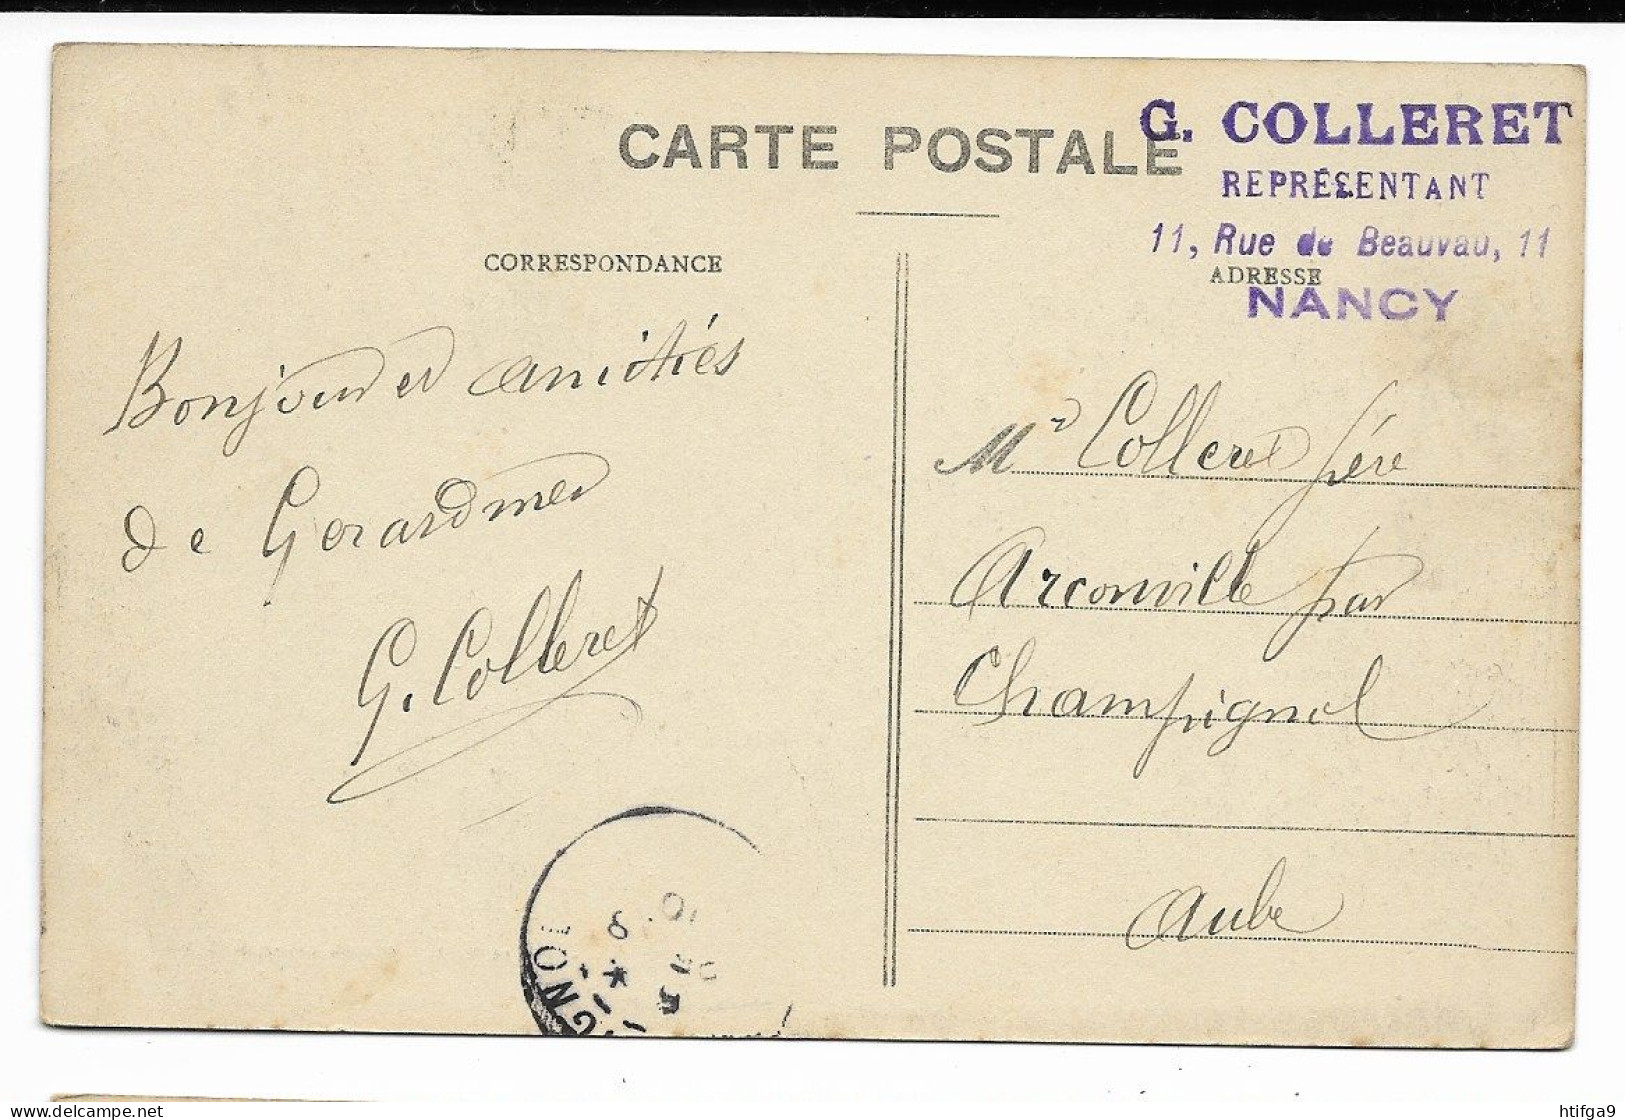 CARTE POSTALE
G. COLLERET
REPRÉSENTANT
11, Rue de Beauvau, 11
NANCY
CORRESPONDANCE
ADRESSE
Bonjour et amitiés
de Gerardmer
G. Colleret
Mr Colleret père
Arconville par
Champignol
Aube
IGNOL
delcampe.net
htifga9